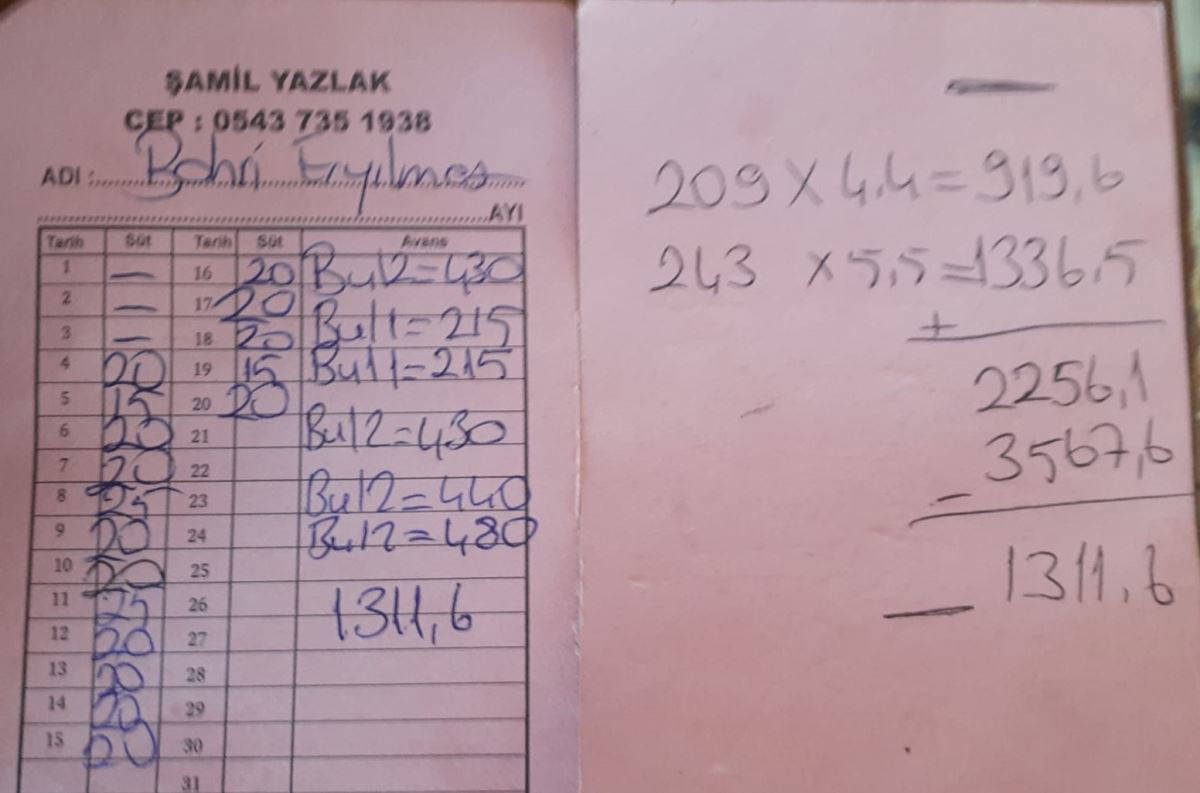 ŞAMİL YAZLAK
CEP : 0543 735 1938
ADI : Bahri
AYI
Tarih Süt Tarih Süt Avans
1 — 16 20 Bu12=430
2 — 17 20
3 — 18 20 Bu11=215
4 20 19 15 Bu11=215
5 15 20 20
6 20 21 Bu12=430
7 20 22
8 25 23 Bu12=440
9 20 24 Bu12=480
10 20 25
11 25 26 1311,6
12 20 27
13 20 28
14 20 29
15 20 30
31
—
209 X 4.4 = 919,6
243 X 5,5 = 1336,5
+
2256,1
- 3567,6
— 1311.6